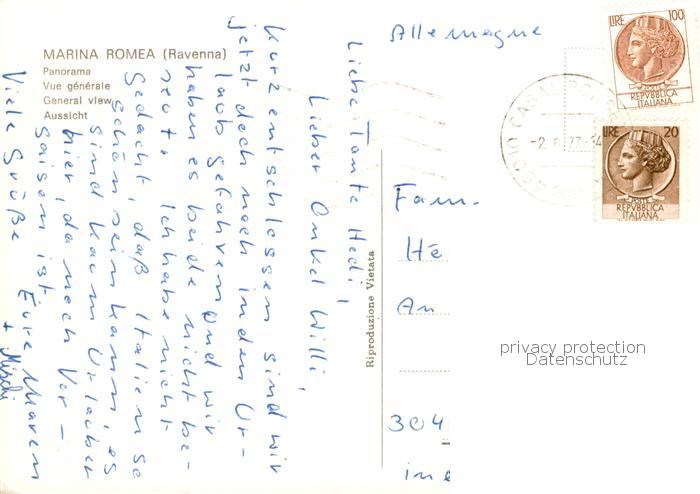 MARINA ROMEA (Ravenna)
Panorama
Vue générale
General view
Aussicht
Liebe Tante Hedi,
Lieber Onkel Willi,
kurz entschlossen sind wir
jetzt doch noch in den Ur-
laub gefahren und wir
haben es beide nicht be-
reut. Ich habe nicht
gedacht, daß Italien so
schön sein kann, es
sind kaum Urlauber
hier, da noch Vor-
saison ist.
Viele Grüße
Eure Maren
+
Riproduzione Vietata
Allemagne
LIRE 100
REPVBBLICA
ITALIANA
LIRE 20
REPVBBLICA
ITALIANA
Fam.
He
An
304
in
privacy protection
Datenschutz